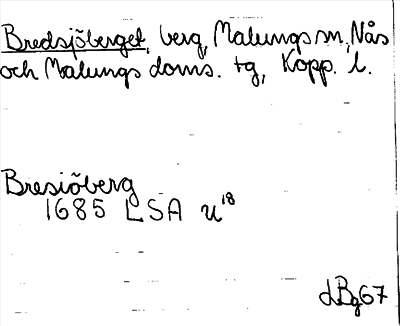 Bredsjöberget, berg, Malungs sn, Nås
och Malungs doms. tg, Kopp. l.
Bresiöberg
1685 LSA u18
dBg67